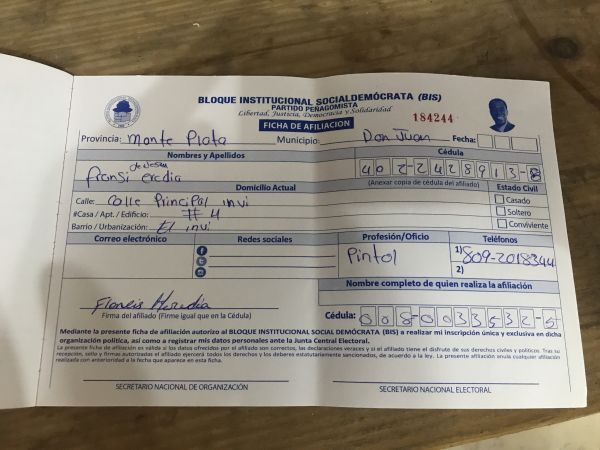 BLOQUE INSTITUCIONAL SOCIALDEMÓCRATA (BIS)
PARTIDO PEÑAGOMISTA
Libertad, Justicia, Democracia y Solidaridad
184244
FICHA DE AFILIACION
Provincia: Monte Plata Municipio: Don Juan Fecha:
Nombres y Apellidos Cédula
de Jesus
fransi eredia 402-2428913-8
(Anexar copia de cédula del afiliado)
Domicilio Actual Estado Civil
Calle: Calle Principal invi Casado
#Casa / Apt. / Edificio: # 4 Soltero
Barrio / Urbanización: El invi Conviviente
Correo electrónico Redes sociales Profesión/Oficio Teléfonos
Pintol 1) 809-2018344
2)
Nombre completo de quien realiza la afiliación
Heredia
Firma del afiliado (Firme igual que en la Cédula) Cédula: 008-0033532-5
Mediante la presente ficha de afiliación autorizo al BLOQUE INSTITUCIONAL SOCIAL DEMÓCRATA (BIS) a realizar mi inscripción única y exclusiva en dicha
organización política, así como a registrar mis datos personales ante la Junta Central Electoral.
La presente ficha de afiliación es válida si los datos ofrecidos por el afiliado son correctos, las declaraciones veraces y si el afiliado tiene el disfrute de sus derechos civiles y políticos. Tras su
recepción, sello y firmas autorizadas el afiliado ejercerá todos los derechos y los deberes estatutariamente sancionados, de acuerdo a la ley. La presente afiliación anula cualquier afiliación
realizada con anterioridad a la fecha que aparece en esta ficha.
SECRETARIO NACIONAL DE ORGANIZACIÓN SECRETARIO NACIONAL ELECTORAL